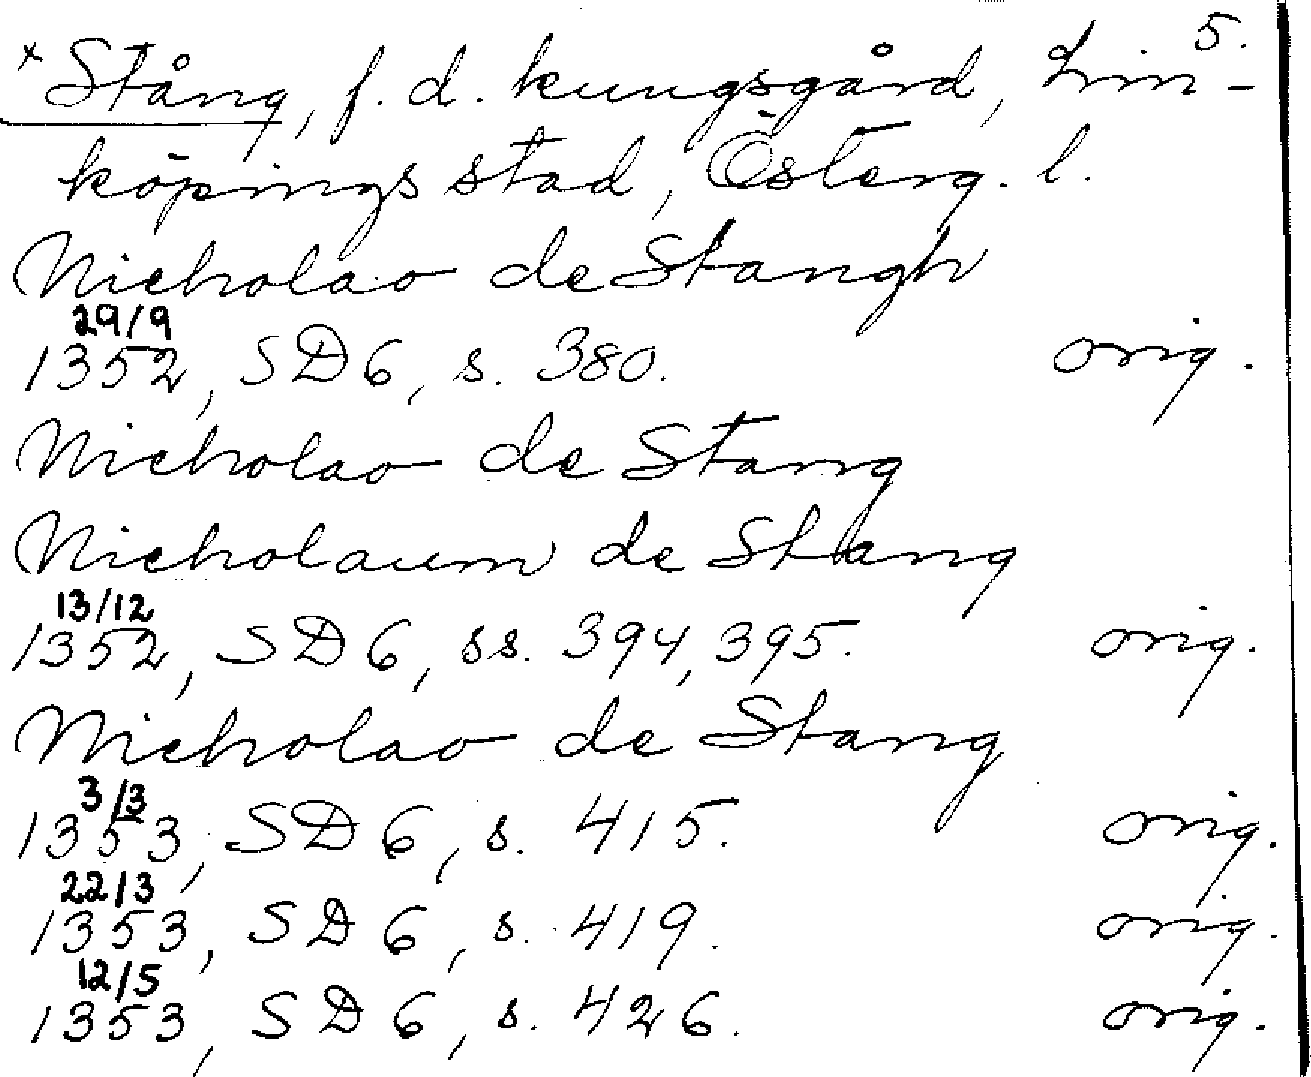 5.
× Stång, f. d. kungsgård, Lin-
köpings stad, Österg. l.
Nicholao de Stangh
29/9
1352, SD 6, s. 380. orig.
Nicholao de Stang
Nicholaum de Stang
13/12
1352, SD 6, ss. 394, 395. orig.
Nicholao de Stang
3/3
1353, SD 6, s. 415. orig.
22/3
1353, SD 6, s. 419. orig.
12/5
1353, SD 6, s. 426. orig.